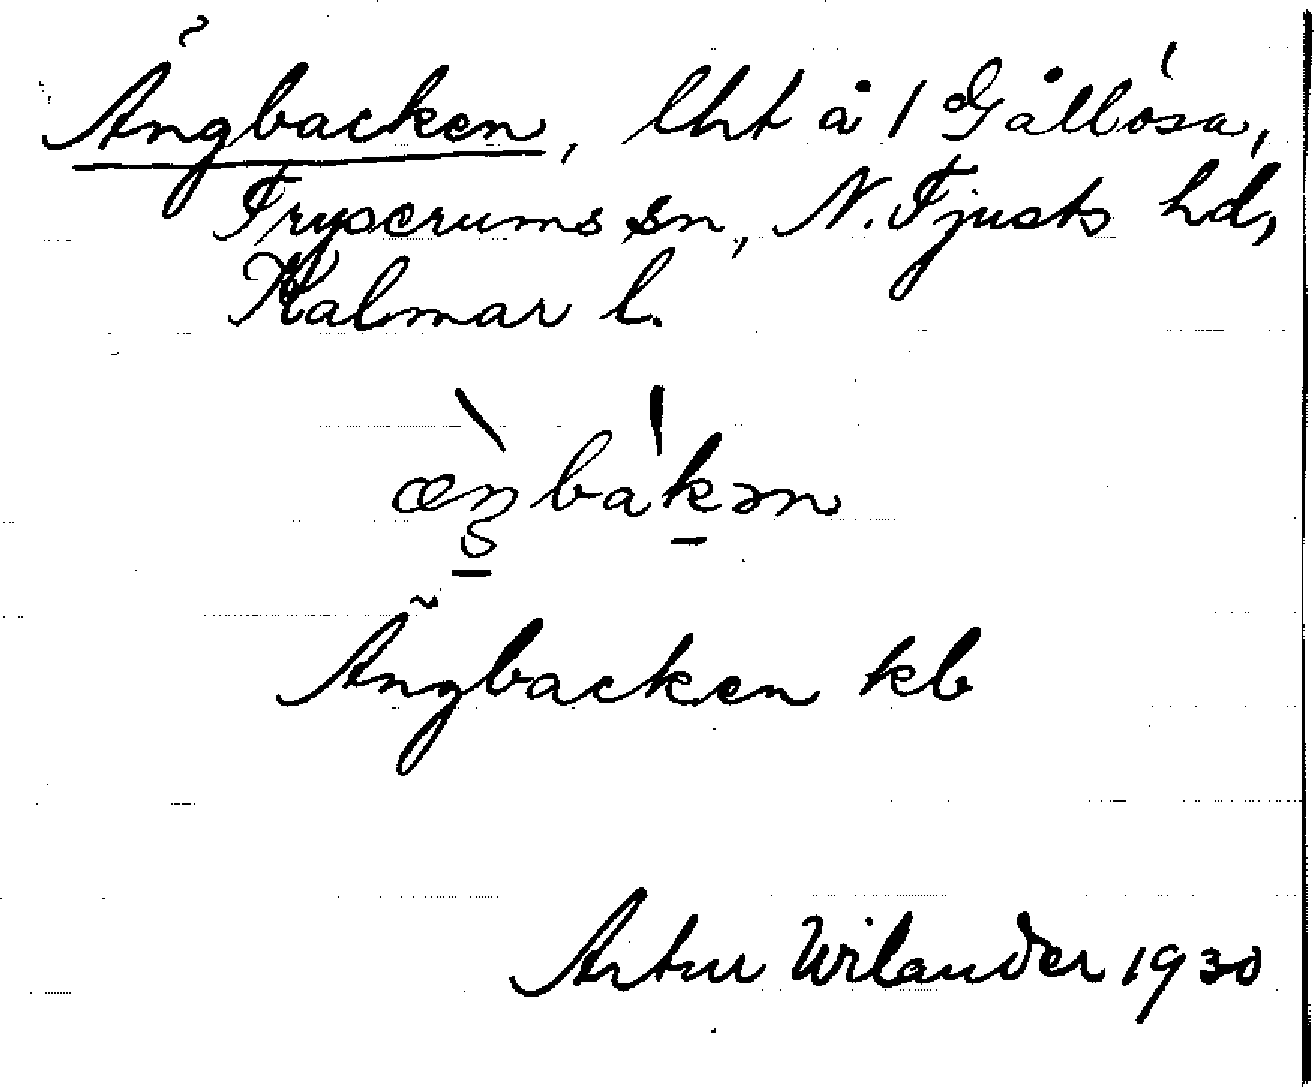 Ängbacken, lht å 1 Gållösa,
Tryserums sn, N. Tjusts hd,
Kalmar l.
Ängbacken kb
Artur Wilander 1930